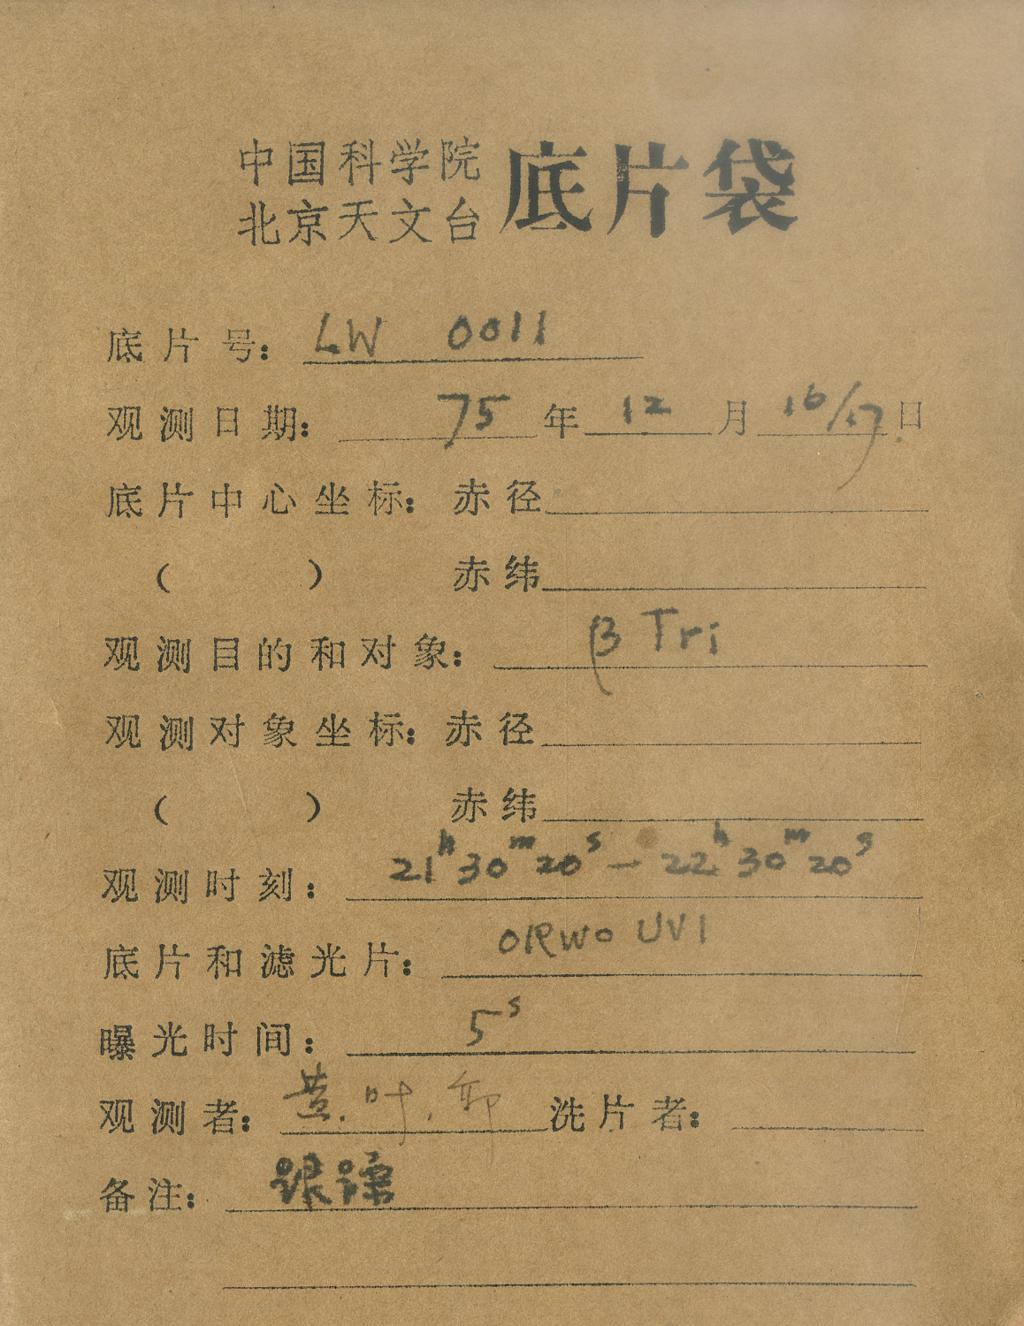 中国科学院
北京天文台 底片袋
底片号: LW 0011
观测日期: 75年12月16/17日
底片中心坐标: 赤径
( ) 赤纬
观测目的和对象: β Tri
观测对象坐标: 赤径
( ) 赤纬
观测时刻: 21h30m20s — 22h30m20s
底片和滤光片: ORWO UV1
曝光时间: 5s
观测者: 黄.叶. 洗片者:
备注: 跟踪